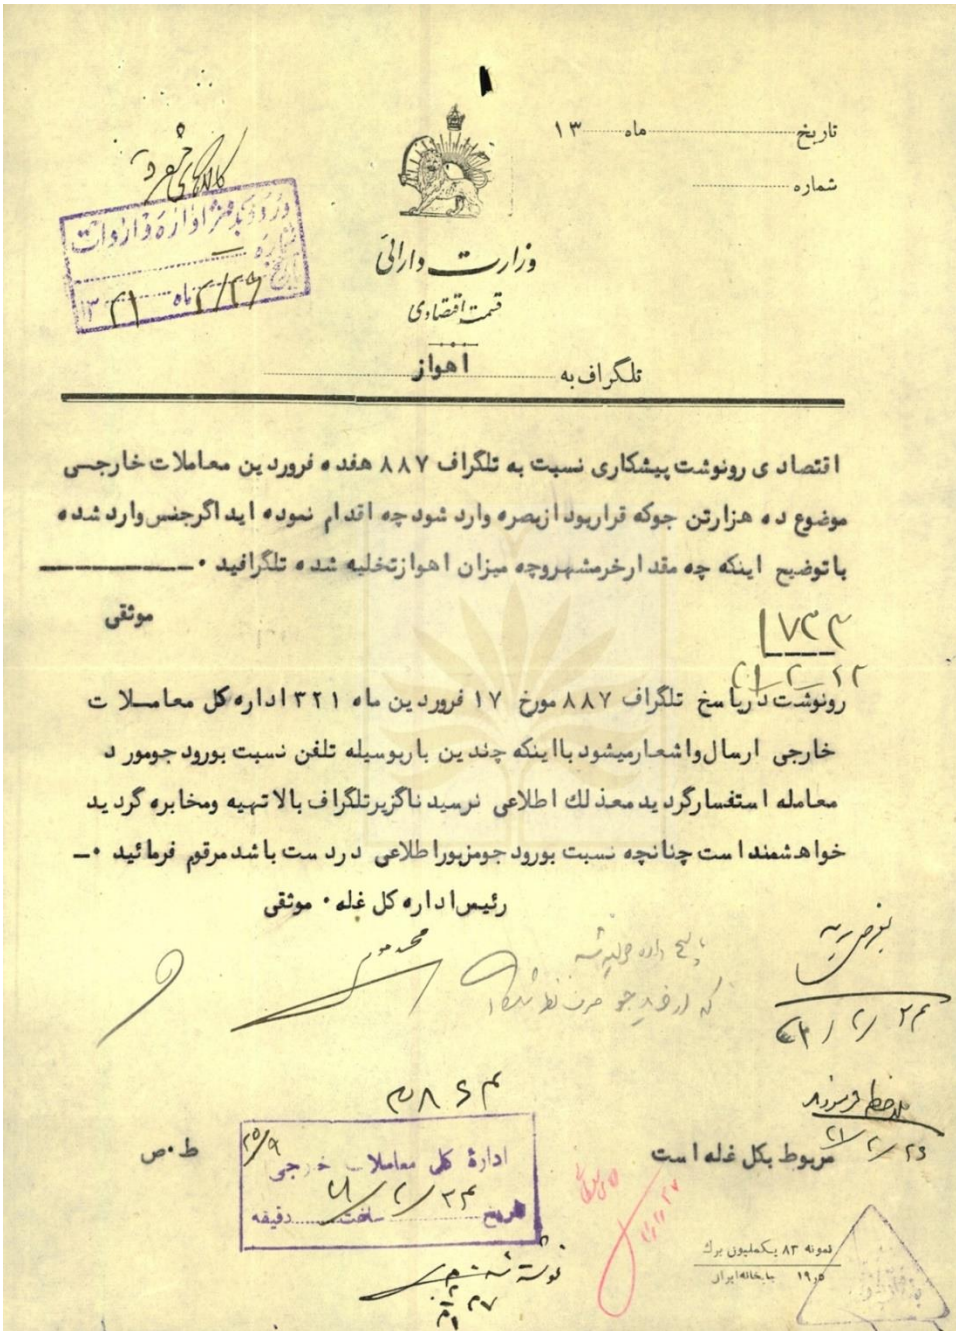 تاریخ ............ ماه ...... ۱۳
شماره ............
کالاهای متفرقه
وزارت دارائی
قسمت اقتصادی
تلگراف به اهواز
اقتصادی رونوشت پیشکاری نسبت به تلگراف ۸۸۷ هفده فروردین معاملات خارجی
موضوع ده هزارتن جوکه قراربود ازبصره وارد شود چه اقدام نموده اید اگرجنس وارد شده
باتوضیح اینکه چه مقدارخرمشهروچه میزان اهوازتخلیه شده تلگرافید ۰
موثقی
۱۷۳۳
۲۱/۲/۲۲
رونوشت درپاسخ تلگراف ۸۸۷ مورخ ۱۷ فروردین ماه ۳۲۱ اداره کل معاملات
خارجی ارسال واشعارمیشود بااینکه چندین باربوسیله تلفن نسبت بورود جومورد
معامله استفسارگردید معذلك اطلاعی نرسید ناگزیرتلگراف بالا تهیه ومخابره گردید
خواهشمند است چنانچه نسبت بورود جومزبوراطلاعی دردست باشد مرقوم فرمائید ۰ـ
رئیس اداره کل غله ۰ موثقی
پاسخ داده
که از خرید جو صرف نظر شده
اداره کل معاملات خارجی
تاریخ ساعت دقیقه
ط ۰ ص
مربوط بکل غله است
نوشته شد
نمونه ۸۳ یکملیون برك
۱۹ر۵ چاپخانه ایران